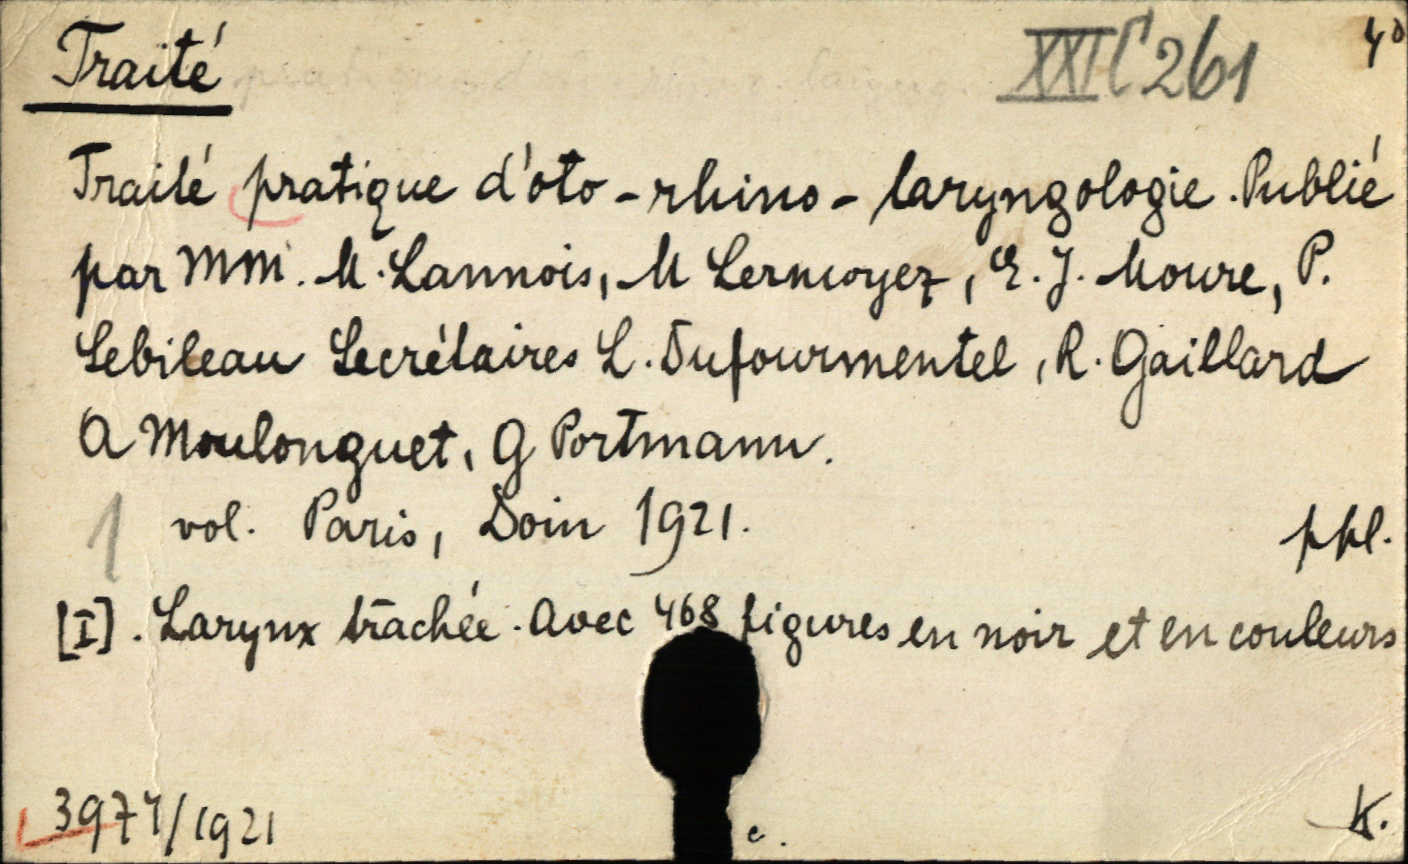 Traité
XXII C 261
4°
Traité pratique d'oto-rhino-laryngologie. Publié
par MM. M. Lannois, M Lermoyez, E. J. Moure, P.
Sebileau Secrétaires L. Dufourmentel, R. Gaillard
A Moulonguet, G Portmann.
1 vol. Paris, Doin 1921.
ppl.
[I]. Larynx trachée. Avec 468 figures en noir et en couleurs
3974/1921
c.
K.